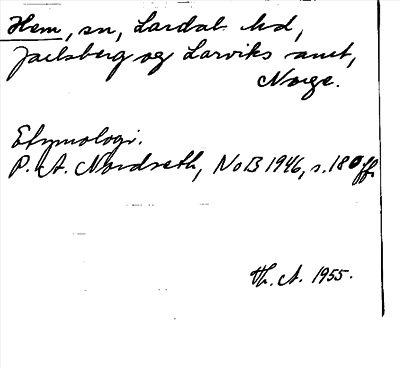 Hem, sn, Lardal hd,
Jarlsberg og Larviks amt,
Norge.
Etymologi.
P. A. Nordseth, NoB 1946, s. 180 ff.
Th. A. 1955.